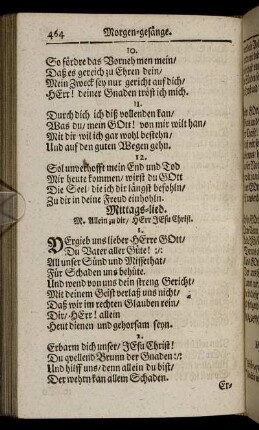 464 Morgen-gesänge.
10.
So fördre das Vornehmen mein/
Daß es gereich zu Ehren dein/
Mein Zweck sey nur gericht auf dich/
HErr! deiner Gnaden tröst ich mich.
11.
Durch dich ich diß vollenden kan/
Was du/ mein GOtt! von mir wilt han/
Mit dir wil ich gar wohl bestehn/
Und auf den guten Wegen gehn.
12.
Sol unverhofft mein End und Tod
Mir heute kommen/ wirst du GOtt
Die Seel/ die ich dir längst befohln/
Zu dir in deine Freud einhohln.
Mittags-lied.
M. Allein zu dir/ HErr JEsu Christ.
1.
VErgieb uns lieber HErre GOtt/
Du Vater aller Güte! :/:
All unser Sünd und Missethat/
Für Schaden uns behüte.
Und wend von uns dein streng Gericht/
Mit deinem Geist verlaß uns nicht/
Daß wir im rechten Glauben rein/
Dir/ HErr! allein
Heut dienen und gehorsam seyn.
2.
Erbarm dich unser/ JEsu Christ!
Du qvellend Brunn der Gnaden :/:
Und hilff uns/ denn allein du bist/
Der wehrn kan allem Schaden.
Er-